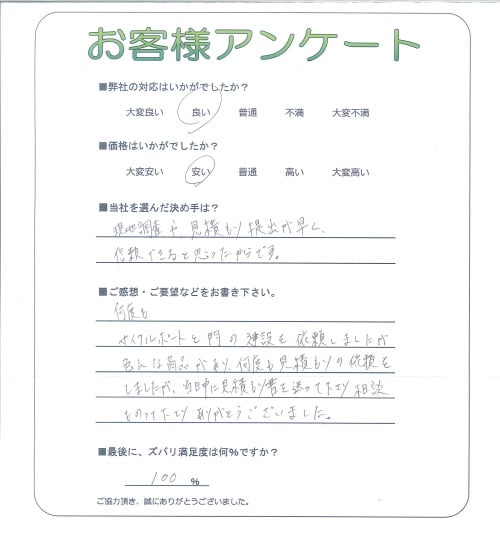 お客様アンケート
■弊社の対応はいかがでしたか？
大変良い 良い 普通 不満 大変不満
■価格はいかがでしたか？
大変安い 安い 普通 高い 大変高い
■当社を選んだ決め手は？
現地調査や、見積もり提出が早く、
信頼できると思ったからです。
■ご感想・ご要望などをお書き下さい。
何度も
サイクルポートと門の建設を依頼しましたが
色んな商品があり、何度も見積もりの依頼を
しましたが、当日中に見積もり書を送って下さり相談
ものって下さりありがとうございました。
■最後に、ズバリ満足度は何％ですか？
100 ％
ご協力頂き、誠にありがとうございました。